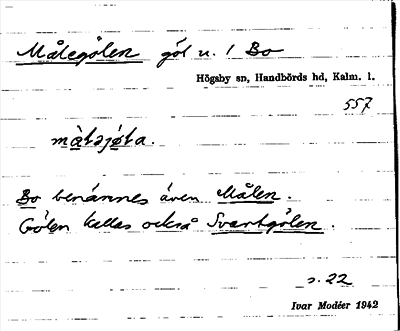 Målegölen göl u. / Bo
Högsby sn, Handbörds hd, Kalm. l.
557
Bo benämnes även Målen.
Gölen kallas också Svartgölen.
s. 22
Ivar Modéer 1942